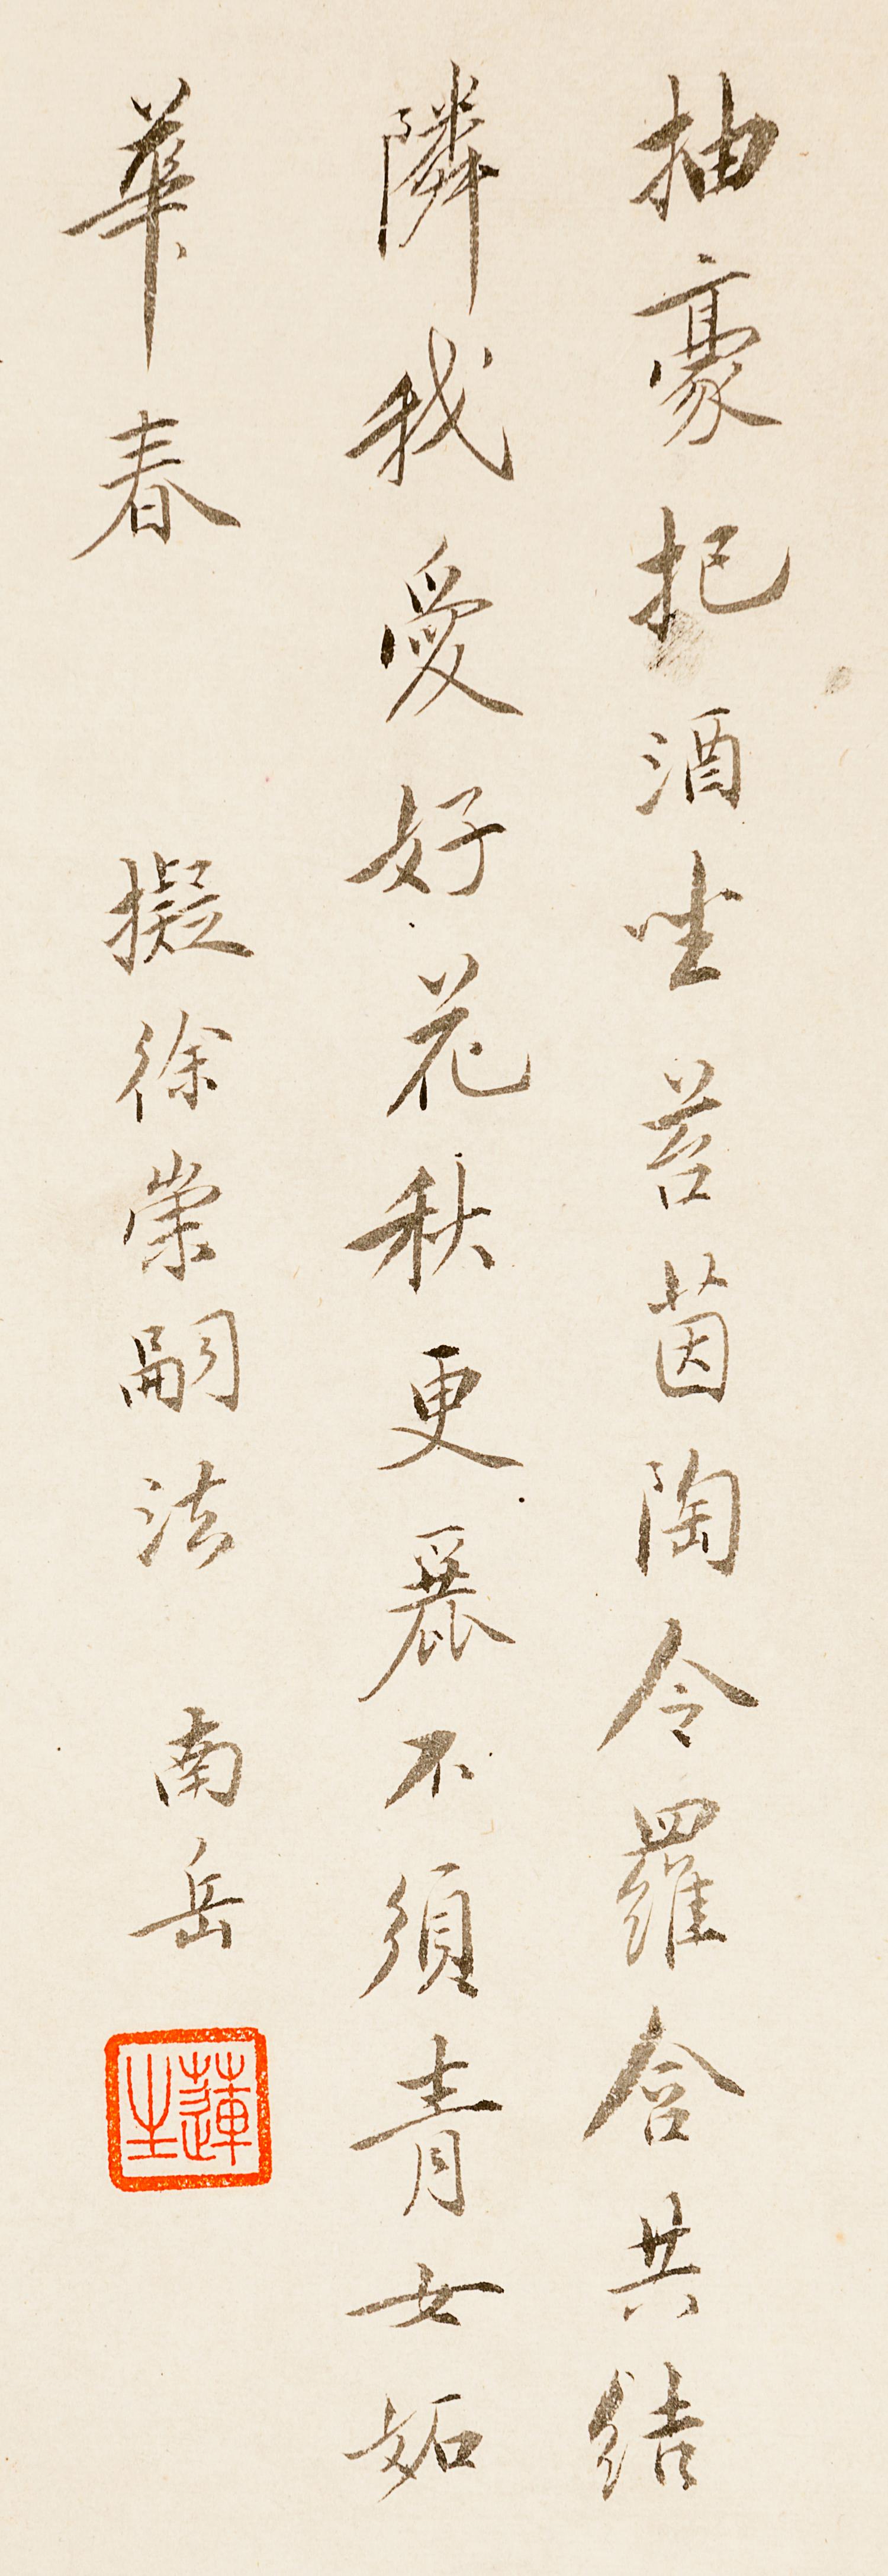 抽豪把酒坐苔茵陶令羅含共結
隣我愛好花秋更麗不須青女妬
華春 擬徐榮嗣法 南岳
蓮生